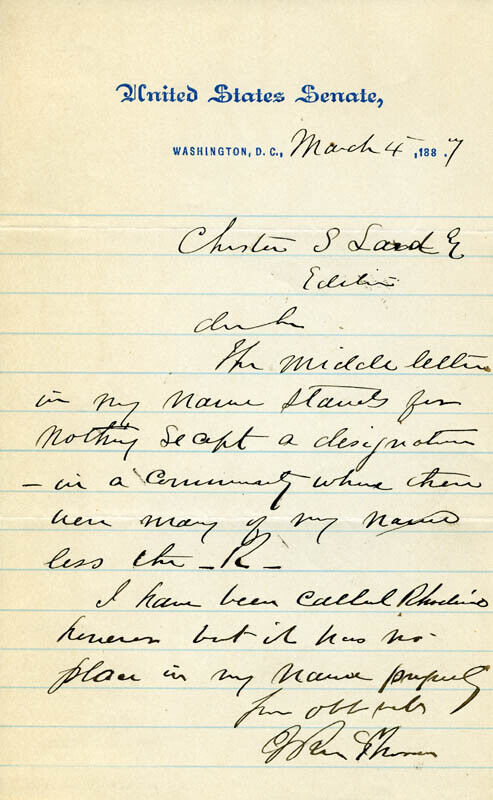 United States Senate,
WASHINGTON, D. C., March 4, 1887
Chester S Lord
Editor
The middle letter
in my name stands for
nothing except a designation
- in a community where there
were many of my name
less the - R -
I have been called
however but it has no
place in my name properly